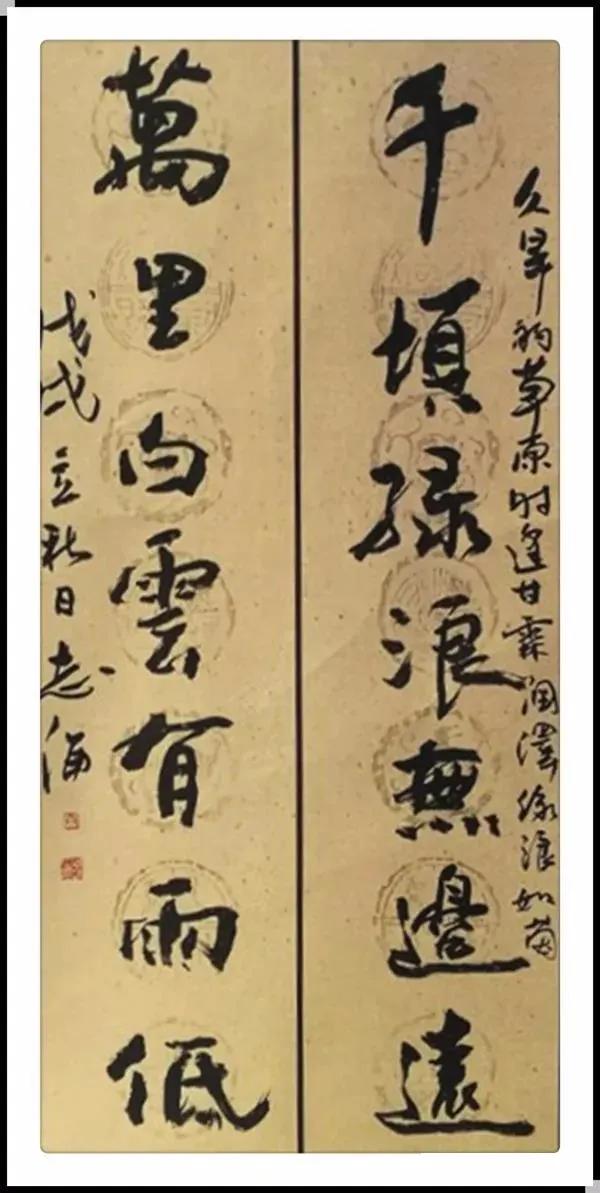 久旱的草原时逢甘霖润澤绿浪如茵
千頃緑浪無邊遠
萬里白雲有雨低
戊戌立秋日志海